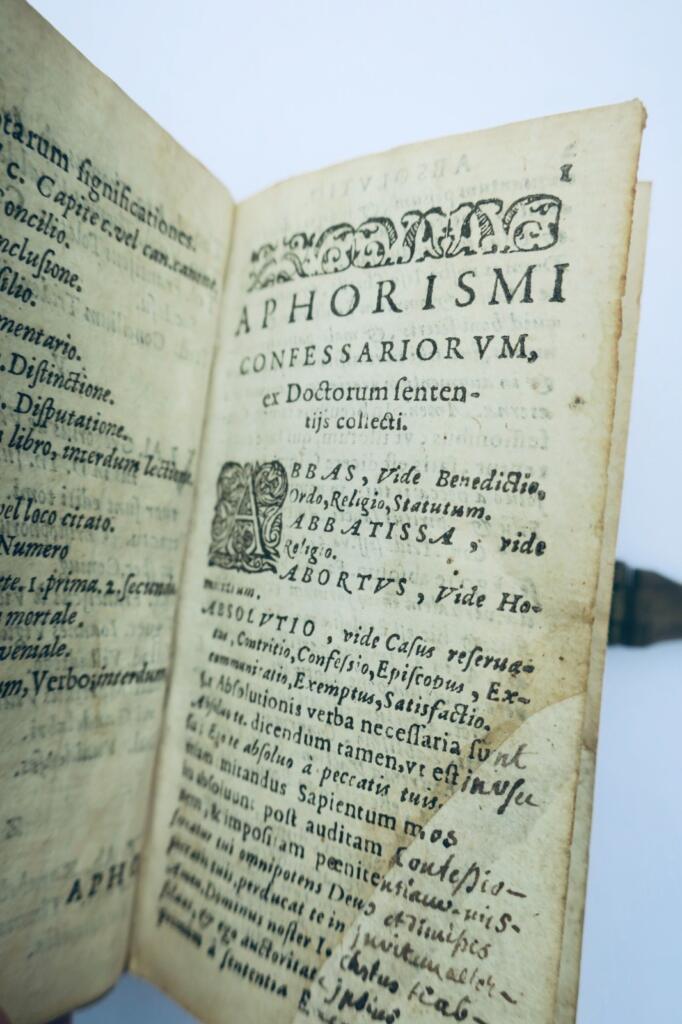 tarum significationes.
c. Capite c. vel can. canone
oncilio.
nclusione.
silio.
mentario.
. Distinctione.
. Disputatione.
libro, interdum lectione
vel loco citato.
Numero
rte. 1. prima. 2. secunda
mortale.
veniale.
um, Verbo, interdum
APHO
1
APHORISMI
CONFESSARIORVM,
ex Doctorum senten-
tijs collecti.
ABBAS, Vide Benedictio,
Ordo, Religio, Statutum.
ABBATISSA, vide
Religio.
ABORTVS, Vide Ho-
ABSOLVTIO, vide Casus reserua-
tus, Contritio, Confessio, Episcopus, Ex-
communicatio, Exemptus, Satisfactio.
Absolutionis verba necessaria sunt
Absoluo te. dicendum tamen, vt est in vsu
Ego te absoluo à peccatis tuis.
mitandus Sapientum mos
absoluunt post auditam Confessio-
nem, & impositam pœnitentiam. mis-
tui omnipotens Deus et dimissis
peccatis tuis, perducat te in
Amen. Dominus noster I. Christus te ab-
& ego auctoritate ipsius
à sententia E